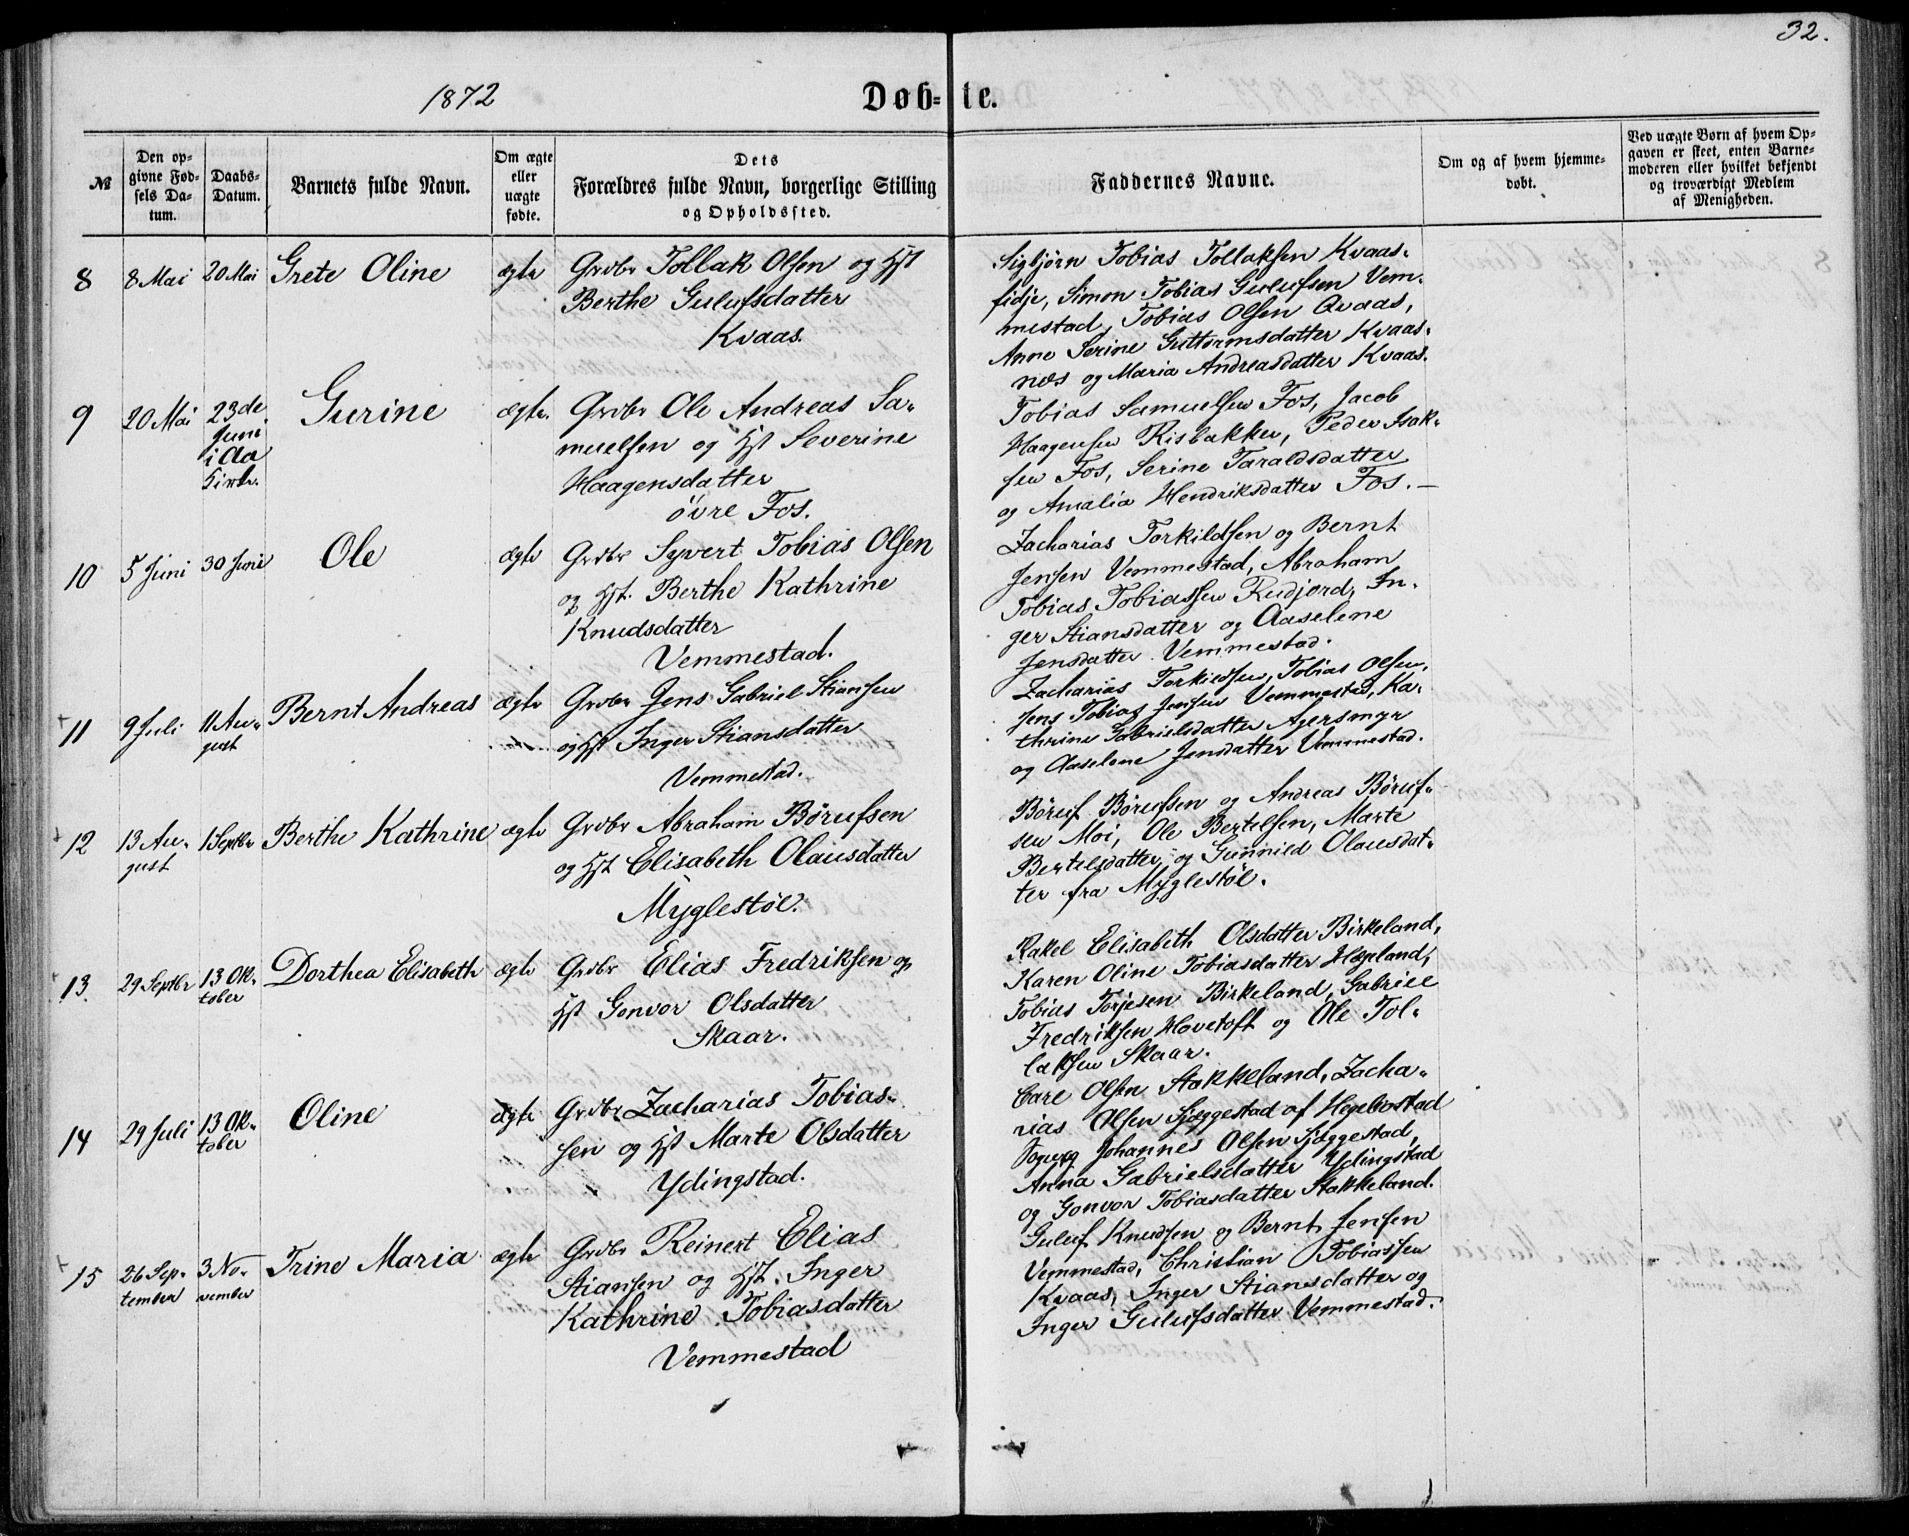 32.
1872
Døb=te.
№
Den op=
givne Fød=
sels Da=
tum.
Daabs=
Datum.
Barnets fulde Navn.
Om ægte
eller
uægte
fødte.
Dets
Forældres fulde Navn, borgerlige Stilling
og Opholdssted.
Faddernes Navne.
Om og af hvem hjemme=
døbt.
Ved uægte Børn af hvem Op=
gaven er skeet, enten Barne=
moderen eller hvilket bekjendt
og troværdigt Medlem
af Menigheden.
8
8 Mai
20 Mai
Grete Oline
ægte
Grdbr Tollak Olsen og Hst
Berthe Gulufsdatter
Kvaas.
Sigbjørn Tobias Tollaksen Kvaas=
fidje, Simon Tobias Gulufsen Vem=
mestad, Tobias Olsen Qvaas,
Anne Serine Guttormsdatter Kvaas=
næs og Maria Andreasdatter Kvaas.
9
20 Mai
23de
Juni
i Aa
Kirke.
Gurine
ægte.
Grdbr Ole Andreas Sa=
muelsen og Hst Severine
Haagensdatter
øvre Fos.
Tobias Samuelsen Fos, Jacob
Haagensen Risbakken, Peder Isak=
sen Fos, Serine Taraldsdatter
og Amalia Hendriksdatter Fos. —
10
5 Juni
30 Juni
Ole
ægte
Grdbr Syvert Tobias Olsen
og Hst. Berthe Kathrine
Knudsdatter
Vemmestad.
Zacharias Torkildsen og Bernt
Jensen Vemmestad, Abraham
Tobias Tobiassen Rudjord, In=
ger Stiansdatter og Aaselene
Jensdatter Vemmestad.
11
9 Juli
11 Au=
gust
Bernt Andreas
ægte
Grdbr Jens Gabriel Stiansen
og Hst Inger Stiansdatter
Vemmestad.
Zacharias Torkildsen, Tobias Olsen,
Jens Tobias Jensen Vemmestad, Ka=
thrine Gabrielsdatter Agersmyr
og Aaselene Jensdatter Vemmestad.
12
13 Au=
gust
1 Septbr
Berthe Kathrine
ægte
Grdbr Abraham Børufsen
og Hst Elisabeth Olausdatter
Myglestøl.
Børuf Børufsen og Andreas Børuf=
sen Moi, Ole Bertelsen, Marte
Bertelsdatter og Gunnild Olausdat=
ter fra Myglestøl.
13.
29 Septbr
13 Ok=
tober
Dorthea Elisabeth
ægte
Grdbr Elias Fredriksen og
Hst Gonvor Olsdatter
Skaar.
Rakel Elisabeth Olsdatter Birkeland,
Karen Oline Tobiasdatter Hægeland,
Tobias Torjesen Birkeland, Gabriel
Fredriksen Hovetoft og Ole Tol=
laksen Skaar.
14
29 Juli
13 Ok=
tober
Oline
ægte
Grdbr Zacharias Tobias=
sen og Hst Marte Olsdatter
Ydingstad.
Carl Olsen Stakkeland, Zacha=
rias Olsen Sjøggestad af Hegebostad
Sogn, Johannes Olsen Sjøggestad,
Anna Gabrielsdatter Ydingstad
og Gonvor Tobiasdatter Stakkeland.
15
26 Sep=
tember
3 No=
vember
Trine Maria
ægte
Grdbr Reinert Elias
Stiansen og Hst. Inger
Kathrine Tobiasdatter
Vemmestad
Guluf Knudsen og Bernt Jensen
Vemmestad, Christian Tobiassen
Kvaas, Inger Stiansdatter og
Inger Gulufsdatter Vemmestad.